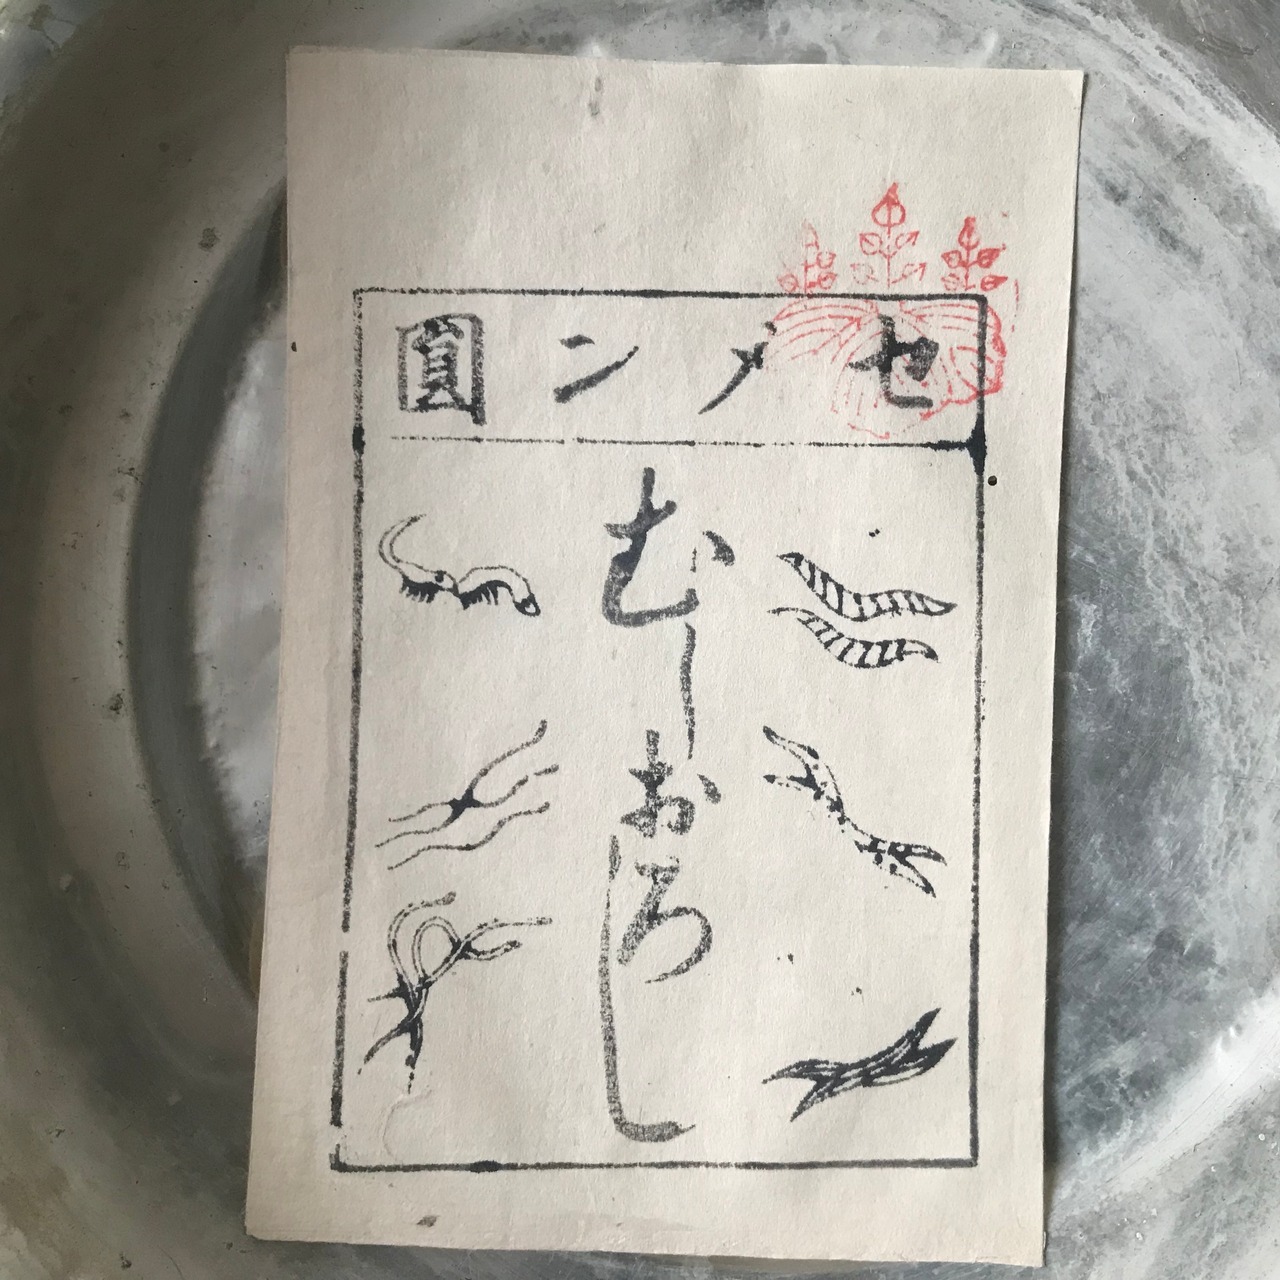 セメン圓
むしおろし